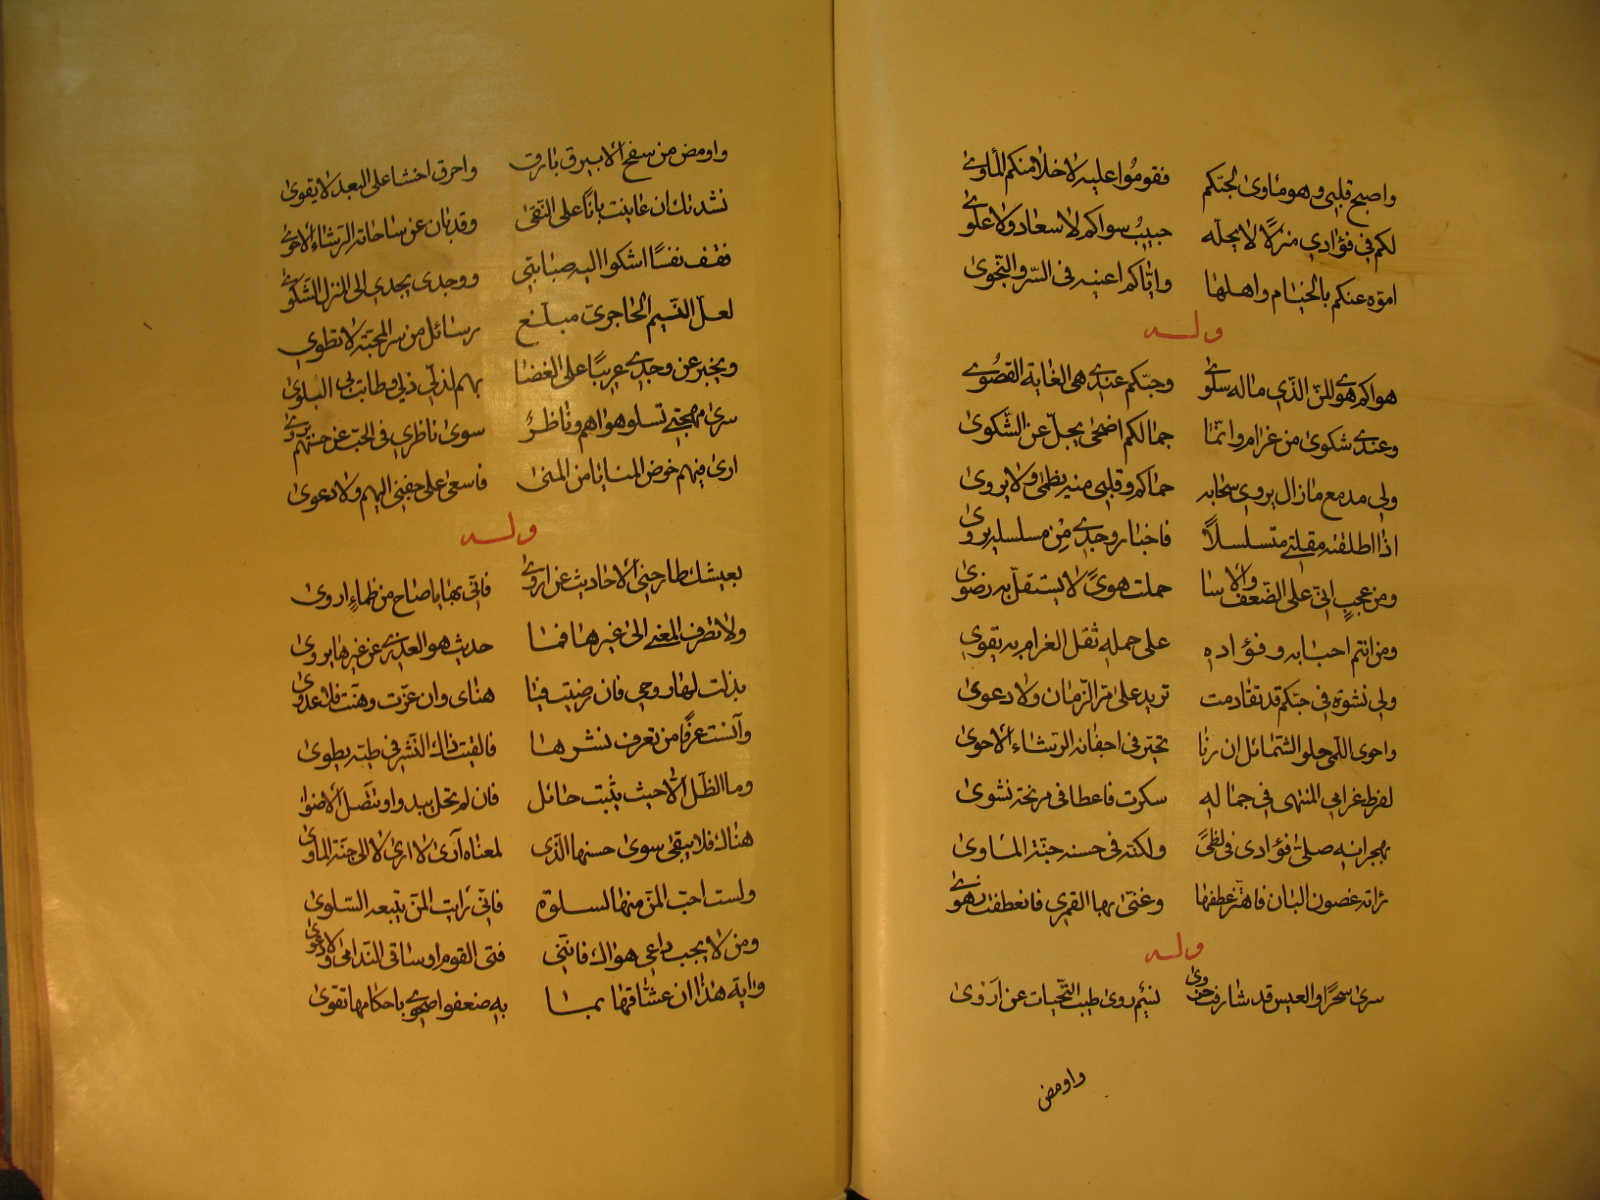 واصبح قلبي وهو مأوى لحبّكم فقوموا عليه لا خلا منكم المأوى
لكم في فؤادي منزلًا لا يحلّه حبيبٌ سواكم لا سعاد ولا علوى
اموّه عنكم بالخيام واهلها واياكم اعنيه في السرّ والنّجوى
وله
هواكم هو المنّ الذي ماله سلوى وحبّكم عندي هي الغاية القصوى
وعندي شكوى من غرام وانّما جمالكم اضحى يجلّ عن الشّكوى
ولي مدمع مازال يروي سحابه حماكم وقلبي منه يظمى ولا يروى
اذا اطلقته مقلتي متسلسلًا فاخبار وجدي مِن مسلسله يروى
ومن عجبٍ انّي على الضّعف والاسا حملت هوىً لا يستقلّ به رضوى
ومن انتم احبابه وفؤاده على حمله ثقل الغرام به يقوى
ولي نشوة في حبّكم قد تقادمت تزيد على مرّ الزّمان ولا دعوى
واحوى اللّمى حلو الشّمائل ان رنا تحيّر في اجفانه الرشاء الاحوى
لفرط غرامي المنتهى في جماله سكرت فاعطافي مرنحة نشوى
بهجرانه صلى فؤادي في لظىً ولكنّه في حسنه جنّة المأوى
رأته غصون البان فاهتزّ عطفها وغنّى بها القمري فانعطفت نهوى
وله
سرى سحرًا والعيس قد شارفت حزوى نسيم روى طيب التّحيات عن اَرْوى
واومض
واومض من سفح الابيرق بارق واحرق احشا على البعد لا يقوى
نشدتك ان عاينت بانًا على النّقى وقد بان عن ساحاته الرشاء الاحوى
فقف نفسًا اشكوا اليه صبابتي ووجدي يجدي الى المنزل الشكوى
لعلّ النّسيم الحاجريّ مبلّغ رسائل من سرّ المحبّة لا تطوى
ويخبر عن وجدي عريبًا على الغضا بهم لذ لي ذلي وطابت بي البلوى
سرى مهجتي تسلو هواهم وناظرُ سوى ناظري في الحبّ عن حسنهم يروى
ارى فيهم خوض المنايا من المنى فاسعى على جفني اليهم ولا دعوى
وله
بعيشك طارحني الاحاديث عن اروى فانّي بها يا صاح من ظماءٍ اروى
ولا تصرف المغنى الى غيرها فما حديث هو العذري عن غيرها يروى
بذلت لها روحي فان رضيت فيا هناي وان عزّت وهنت فلا غدوى
وآنست عرفًا من تعرف نشرها فالفيت ذاك النّشر في طيّه يطوى
وما الظلّ الا حيث يثبت حائل فان لم تحل يبدو او تتّصل الاضوا
هناك فلا يبقى سوى حسنها الّذي لمعناه آرى لا ارى لا الى جنّة المأوى
ولست احبّ المنّ منها لسلوة فانّي رايت المنّ يتبعه السّلوى
ومن لا يجب داعي هواك فانّني فتى القوم او ساقي النّدامى ولا دعوى
واية هذا ان عشّاقها بما به ضعفوا اضحوى باحكامها تقوى